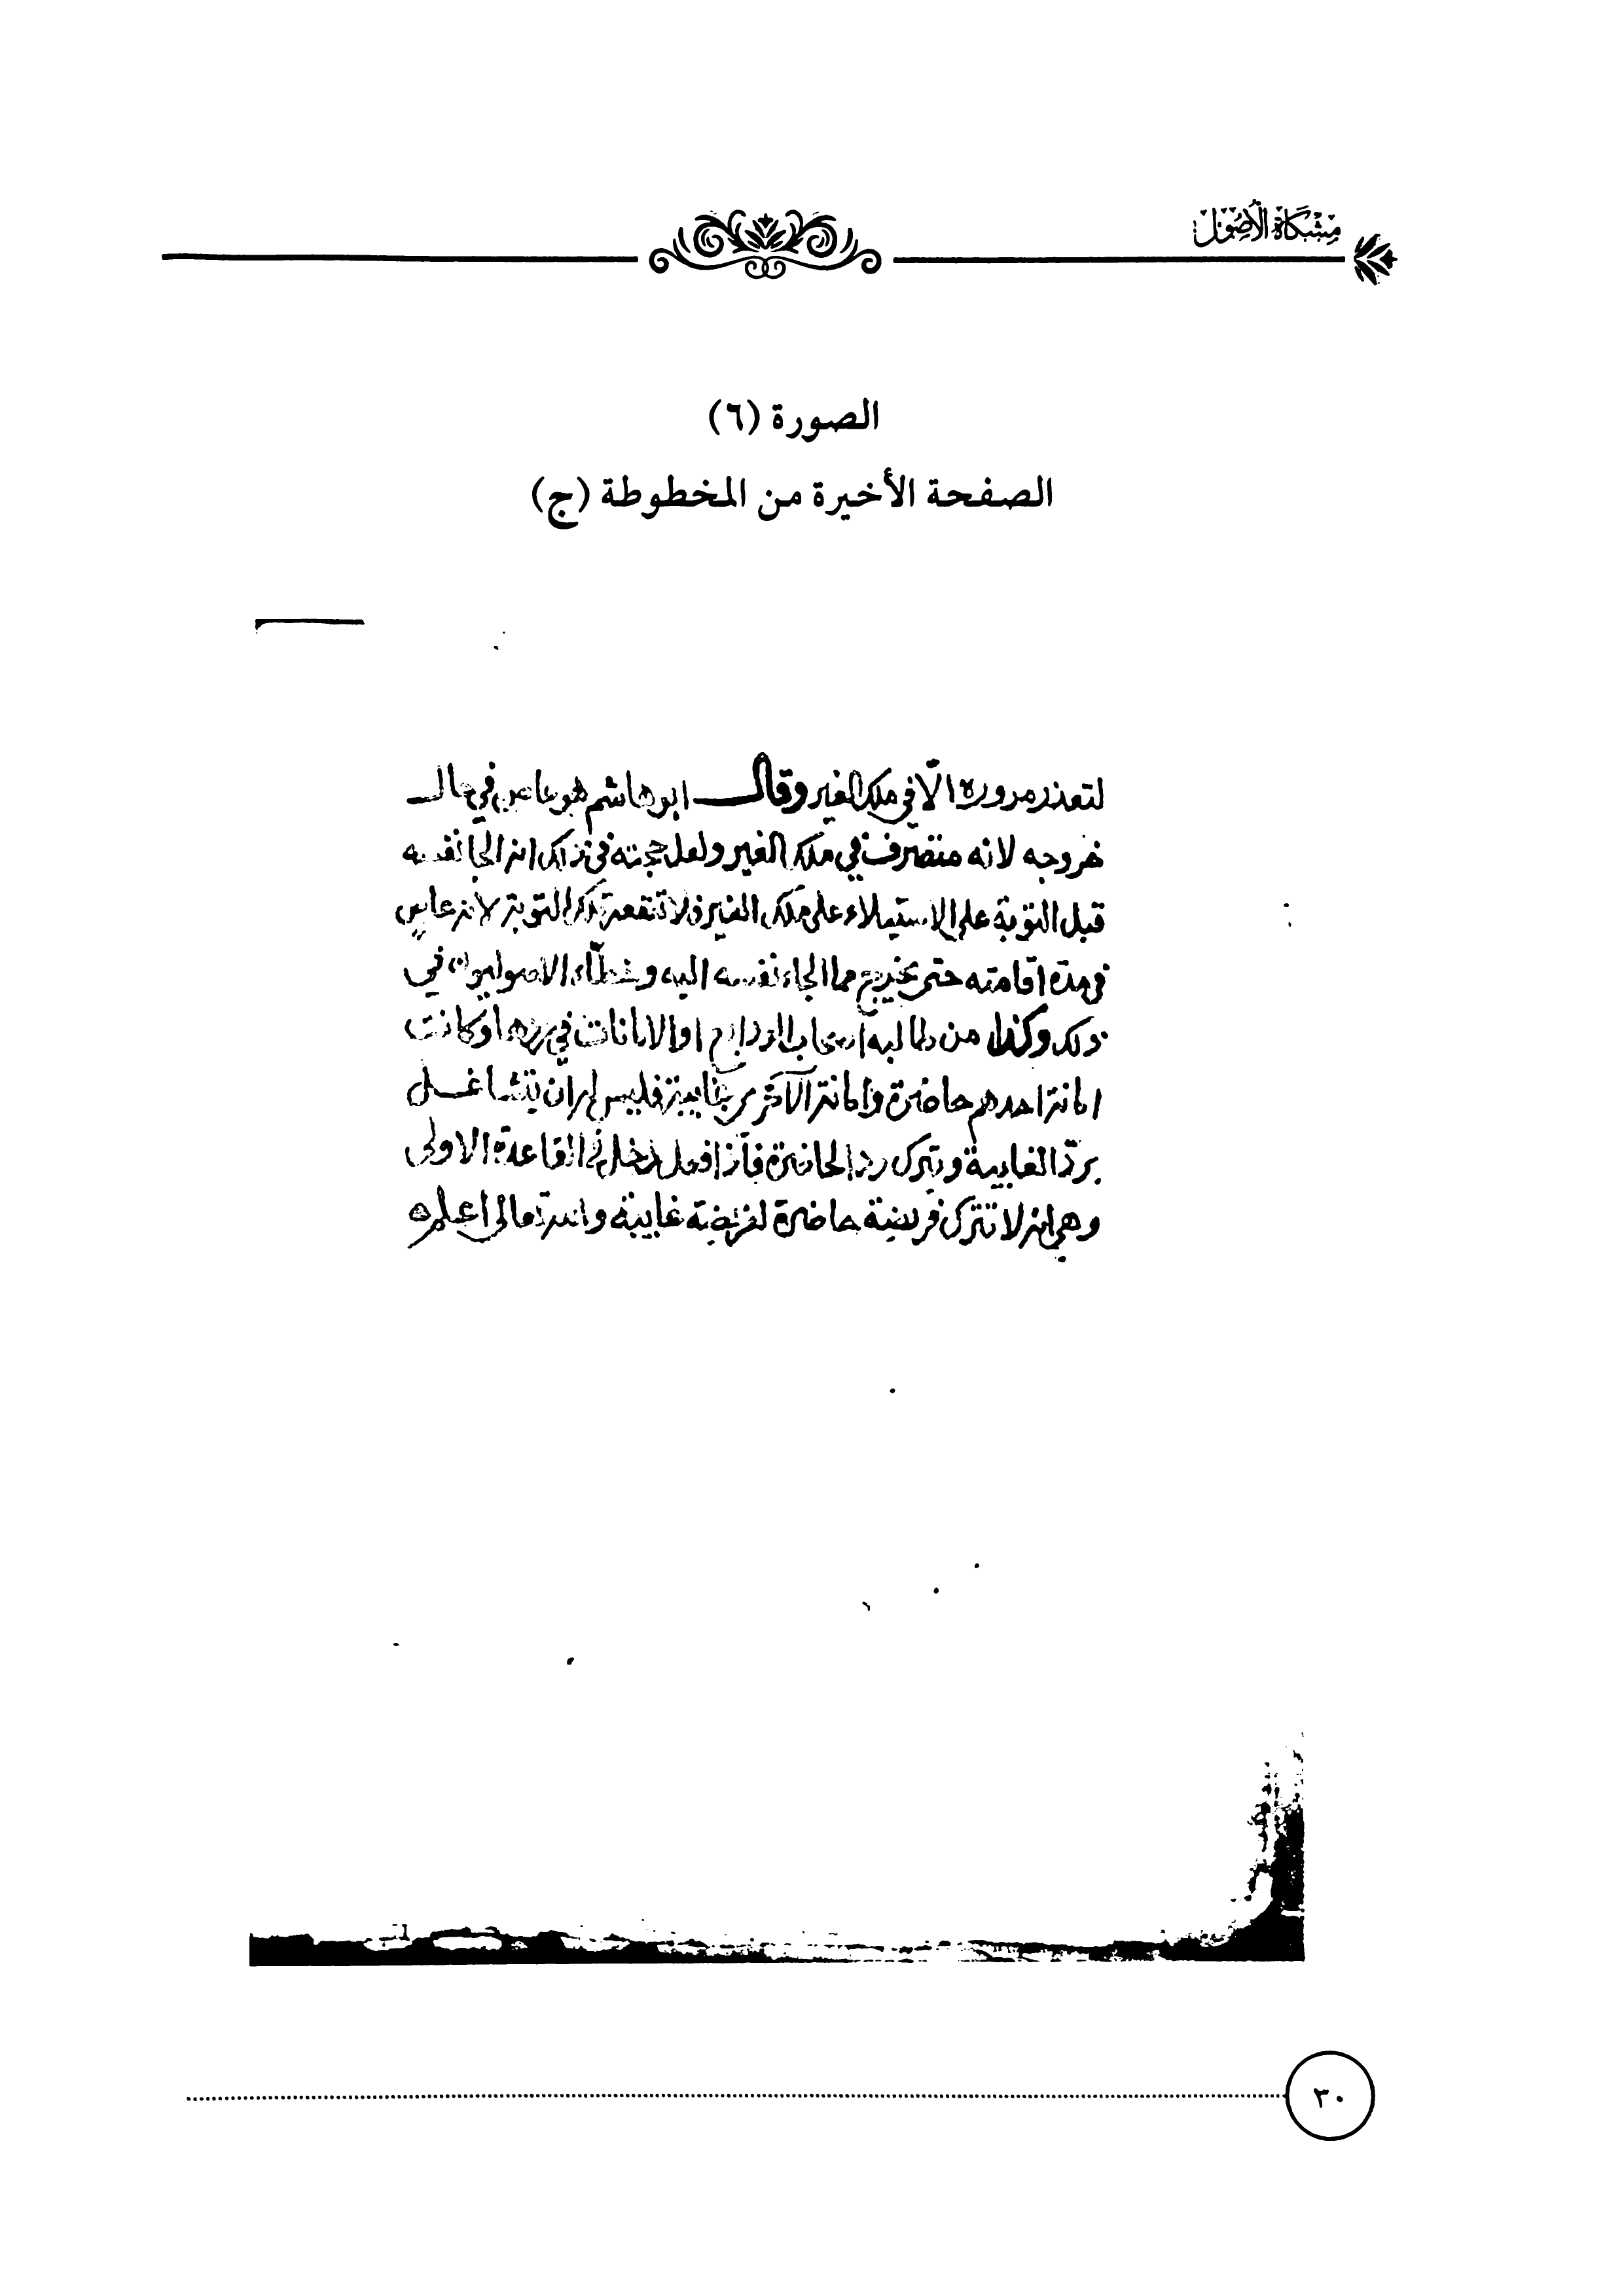 مِشْكَاةُ الْأُصُولِ
الصورة (٦)
الصفحة الأخيرة من المخطوطة (ج)
لتعذر مروره الّا في ملك الغير وقال ابو هاشم هو عاص في حال
خروجه لانه متصرف في ملك الغير ولعل حجته في ذلك انه الجا نفسه
قبل التوبة على الاستيلاء على ملك الغير فلا تنفعه تلك التوبة لانه عاص
في مدة اقامته حتى يخرج مما الجاء نفسه اليه وخطّاء الاصوليون في
ذلك وكذا من طالبه اصحاب الودايع او الامانات في ردها وكانت
امانة احدهم حاضرة وامانة الآخر غايبة فليس له ان يتشاغل
بردّ الغايبة ويترك رد الحاضرة فاذا فعل دخل في القاعدة الاولى
وهي انه لا تترك فريضة حاضرة لفريضة غايبة والله تعالى اعلم
٣٠